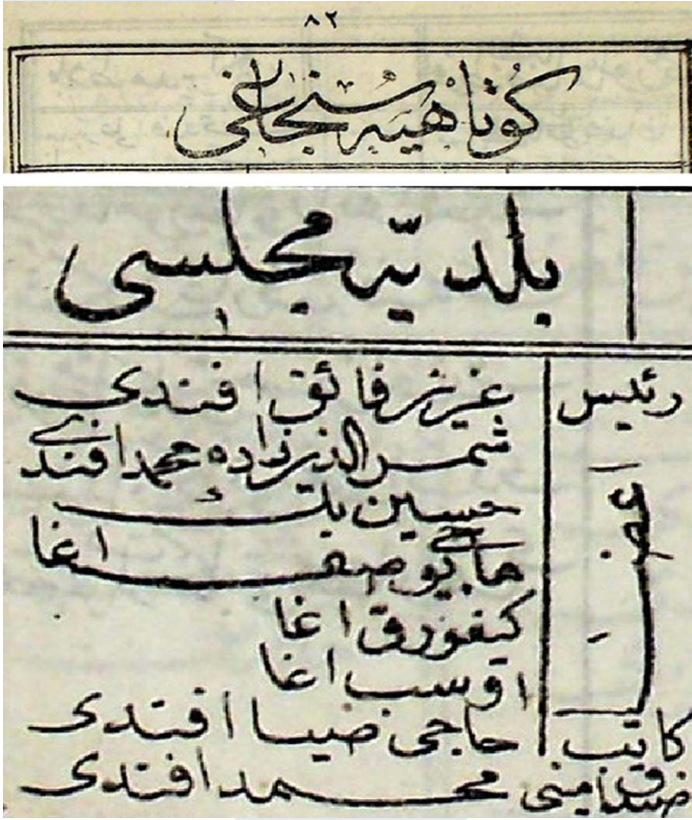 ٨٢
كوتاهيه سنجاغى
بلديّه مجلسى
رئيس عزيز فائق افندى
اعضا شمس الدين زاده محمد افندى
حسين بك
حاجى يوسف اغا
كيفورق اغا
اوسب اغا
كاتب حاجى ضيا افندى
صندق امينى محمد افندى